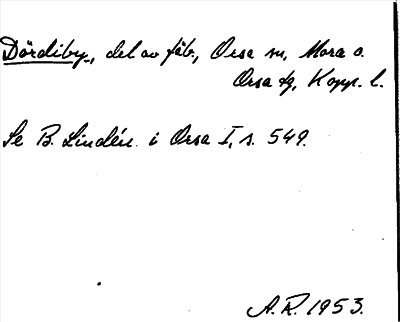 Dördiby, del av fäb., Orsa sn, Mora o.
Orsa tg, Kopp. l.
Se B. Lindén i Orsa I, s. 549.
A.R. 1953.